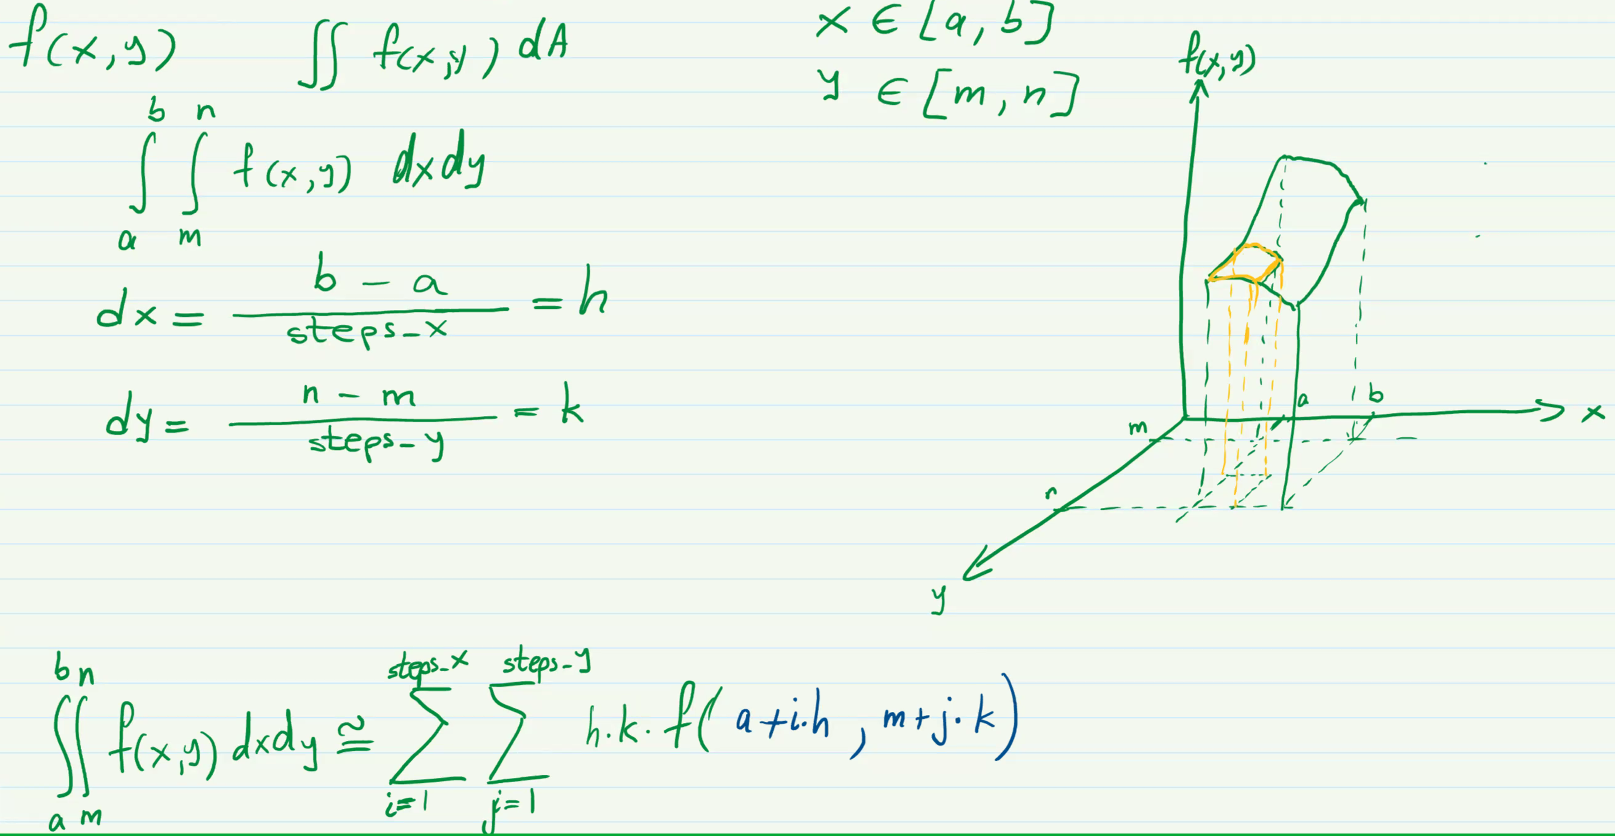 f(x,y) ∬ f(x,y) dA x ∈ [a,b]
y ∈ [m,n]
∫_a^b ∫_m^n f(x,y) dxdy
dx = (b - a)/(steps-x) = h
dy = (n - m)/(steps-y) = k
f(x,y)
a
b
x
m
n
y
∫_a^b ∫_m^n f(x,y) dxdy ≅ ∑_{i=1}^{steps-x} ∑_{j=1}^{steps-y} h.k.f(a+i.h, m+j.k)